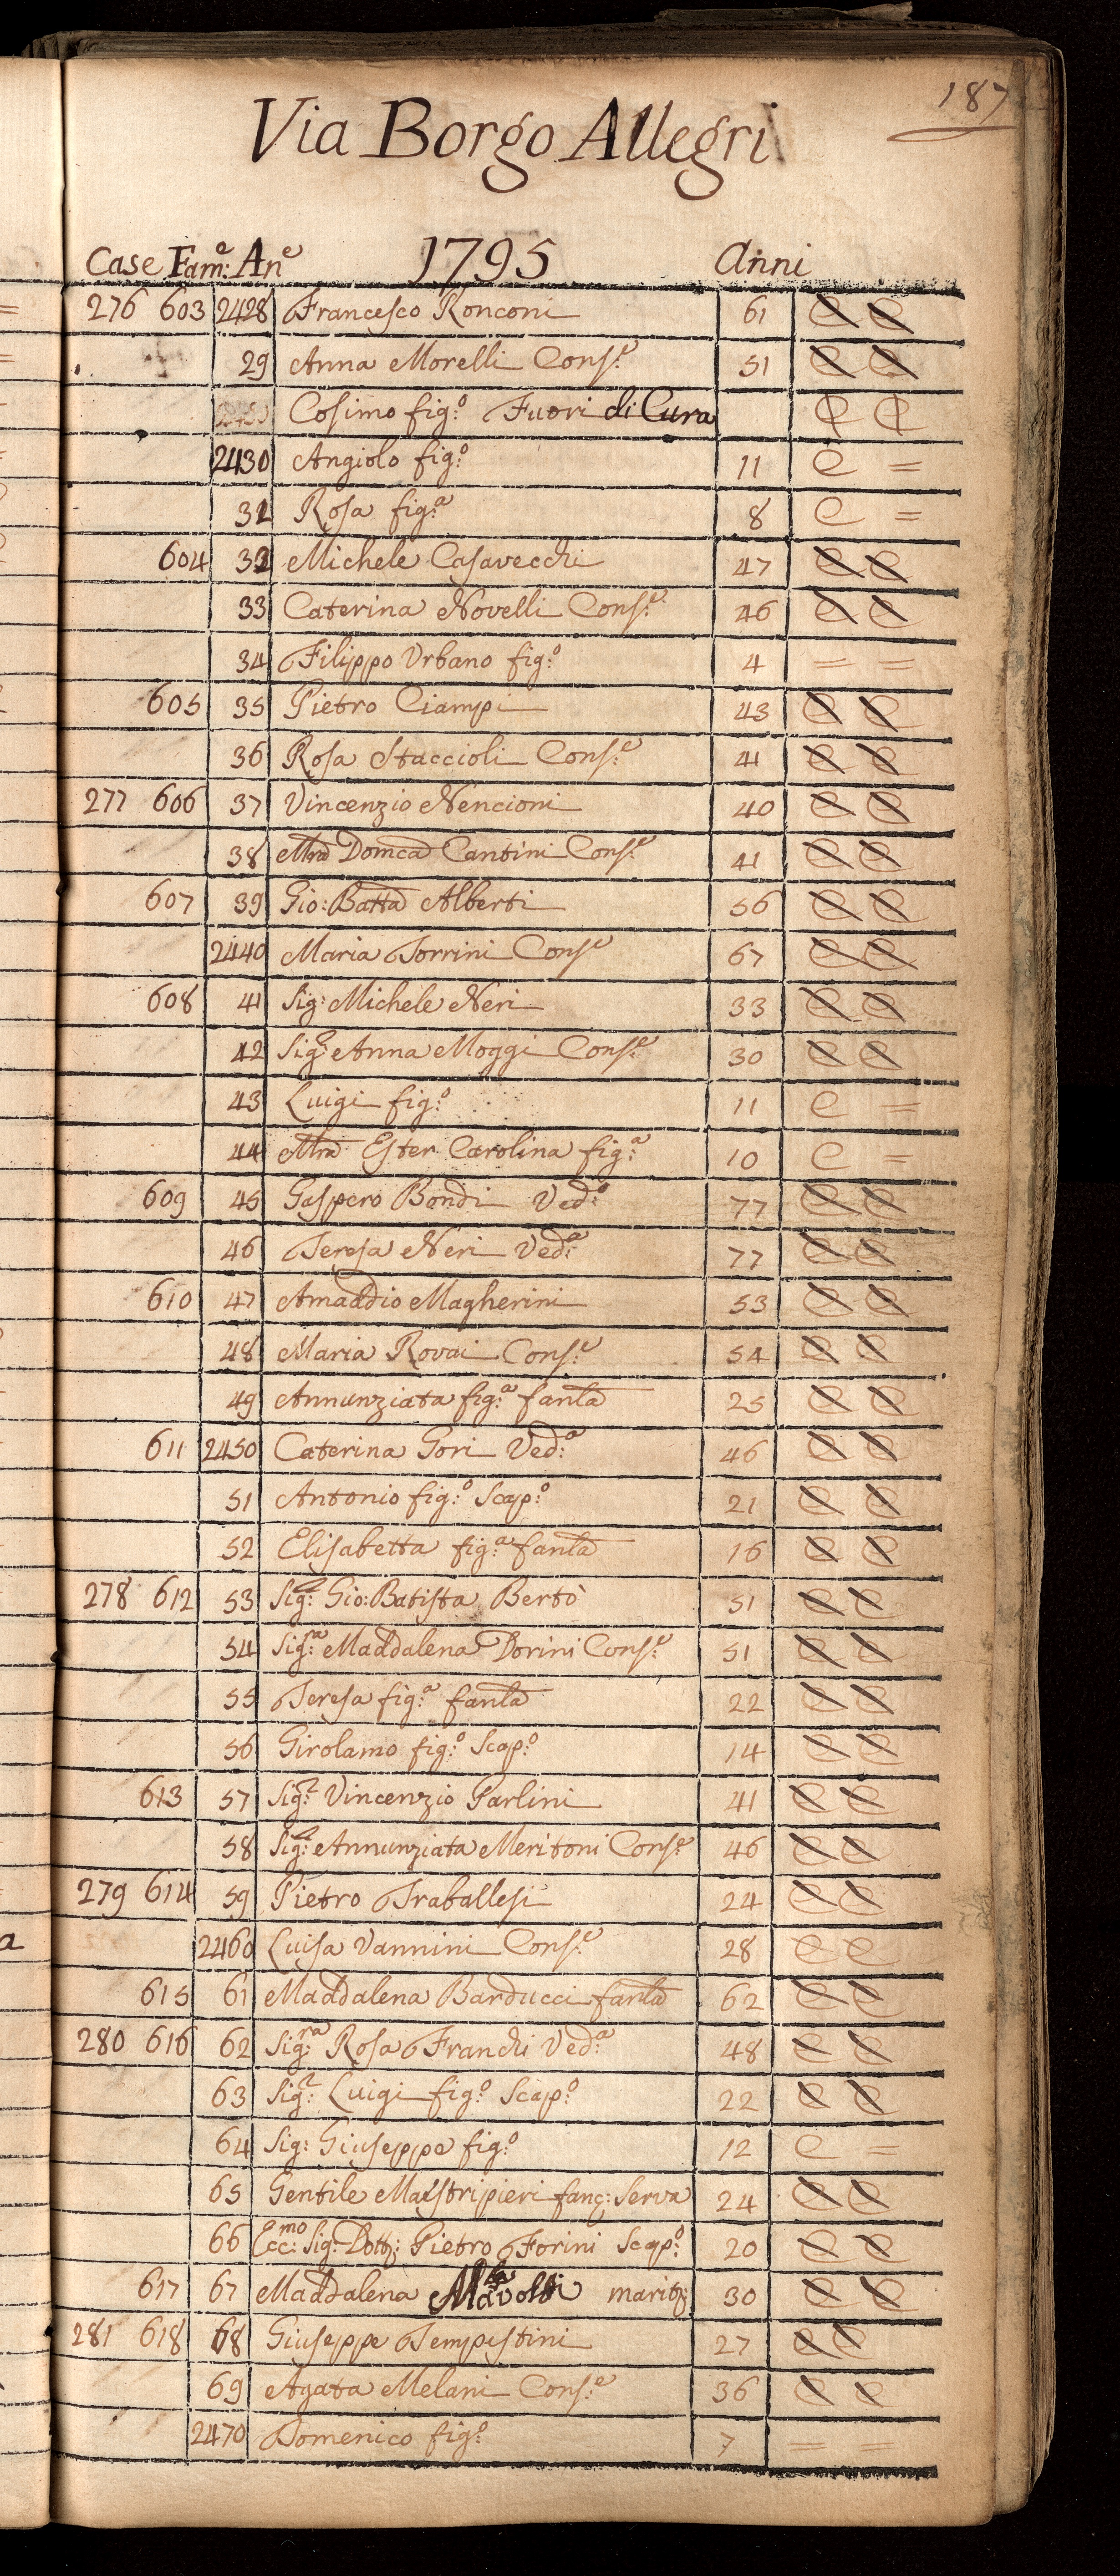 187
Via Borgo Allegri
Case Fam:ᵉ Anᵉ 1795 Anni
276 603 2428 Francesco Ronconi 61 C C
29 Anna Morelli Cons:ᵉ 51 C C
Cosimo fig:º Fuori di Cura C C
2430 Angiolo fig:º 11 C =
31 Rosa fig:ª 8 C =
604 32 Michele Casavecchi 47 C C
33 Caterina Novelli Cons:ᵉ 46 C C
34 Filippo Urbano fig:º 4 = =
605 35 Pietro Ciampi 43 C C
36 Rosa Staccioli Cons:ᵉ 41 C C
277 606 37 Vincenzio Nencioni 40 C C
38 Mra Domca Cantini Cons:ᵉ 41 C C
607 39 Gio: Batta Alberti 56 C C
2440 Maria Torrini Consᵉ 67 C C
608 41 Sig: Michele Neri 33 C C
42 Sig:ª Anna Moggi Cons:ᵉ 30 C C
43 Luigi fig:º 11 C =
44 Mra Ester Carolina fig:ª 10 C =
609 45 Gaspero Bondi Ved:º 77 C C
46 Teresa Neri Ved:ª 77 C C
610 47 Amaddio Magherini 53 C C
48 Maria Rovai Cons:ᵉ 54 C C
49 Annunziata fig:ª fanla 25 C C
611 2450 Caterina Gori Ved:ª 46 C C
51 Antonio fig:º Scap:º 21 C C
52 Elisabetta fig:ª fanla 16 C C
278 612 53 Sig:ʳ Gio: Batista Bertò 51 C C
54 Sig:ʳᵃ Maddalena Dorini Cons:ᵉ 51 C C
55 Teresa fig:ª fanla 22 C C
56 Girolamo fig:º Scap:º 14 C C
613 57 Sig:ʳ Vincenzio Parlini 41 C C
58 Sig:ª Annunziata Meritoni Cons:ᵉ 46 C C
279 614 59 Pietro Traballesi 24 C C
2460 Luisa Vannini Cons:ᵉ 28 C C
615 61 Maddalena Barducci fanla 62 C C
280 616 62 Sig:ʳᵃ Rosa Franchi Ved:ª 48 C C
63 Sig:ʳ Luigi figº Scap:º 22 C C
64 Sig: Giuseppe fig:º 12 C =
65 Gentile Mastripieri fanc: Serva 24 C C
66 Ecc:ᵐᵒ Sig: Dott: Pietro Forini Scap:º 20 C C
617 67 Maddalena marit: 30 C C
281 618 68 Giuseppe Tempestini 27 C C
69 Agata Melani Cons:ᵉ 36 C C
2470 Domenico fig:º 7 = =